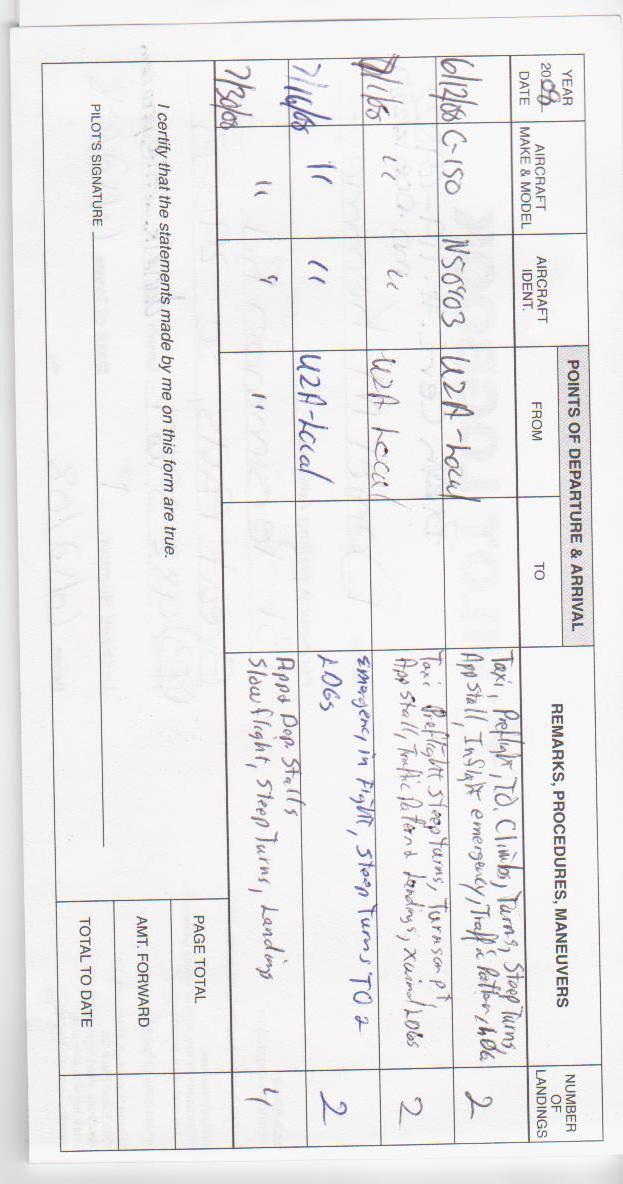 YEAR
2008
DATE
AIRCRAFT
MAKE & MODEL
AIRCRAFT
IDENT.
POINTS OF DEPARTURE & ARRIVAL
FROM
TO
REMARKS, PROCEDURES, MANEUVERS
NUMBER
OF
LANDINGS
6/12/08 C-150 N50903 U2A-Local
Taxi, Preflight, TO. Climbs, Turns, Steep Turns
App Stall, Inflight emergency, Traffic Pattern, LDG
2
7/1/08 " " U2A Local
Taxi Preflight Steep turns, turns on pt,
App Stall, Traffic Pattern & Landings, Xwind LDGs
2
7/16/08 " " U2A-Local
Emergency in Flight, Steep Turns TO 2
LDGs
2
7/30/08 " " "
App & Dep Stalls
Slow flight, Steep Turns, Landing
4
I certify that the statements made by me on this form are true.
PILOT'S SIGNATURE
PAGE TOTAL
AMT. FORWARD
TOTAL TO DATE